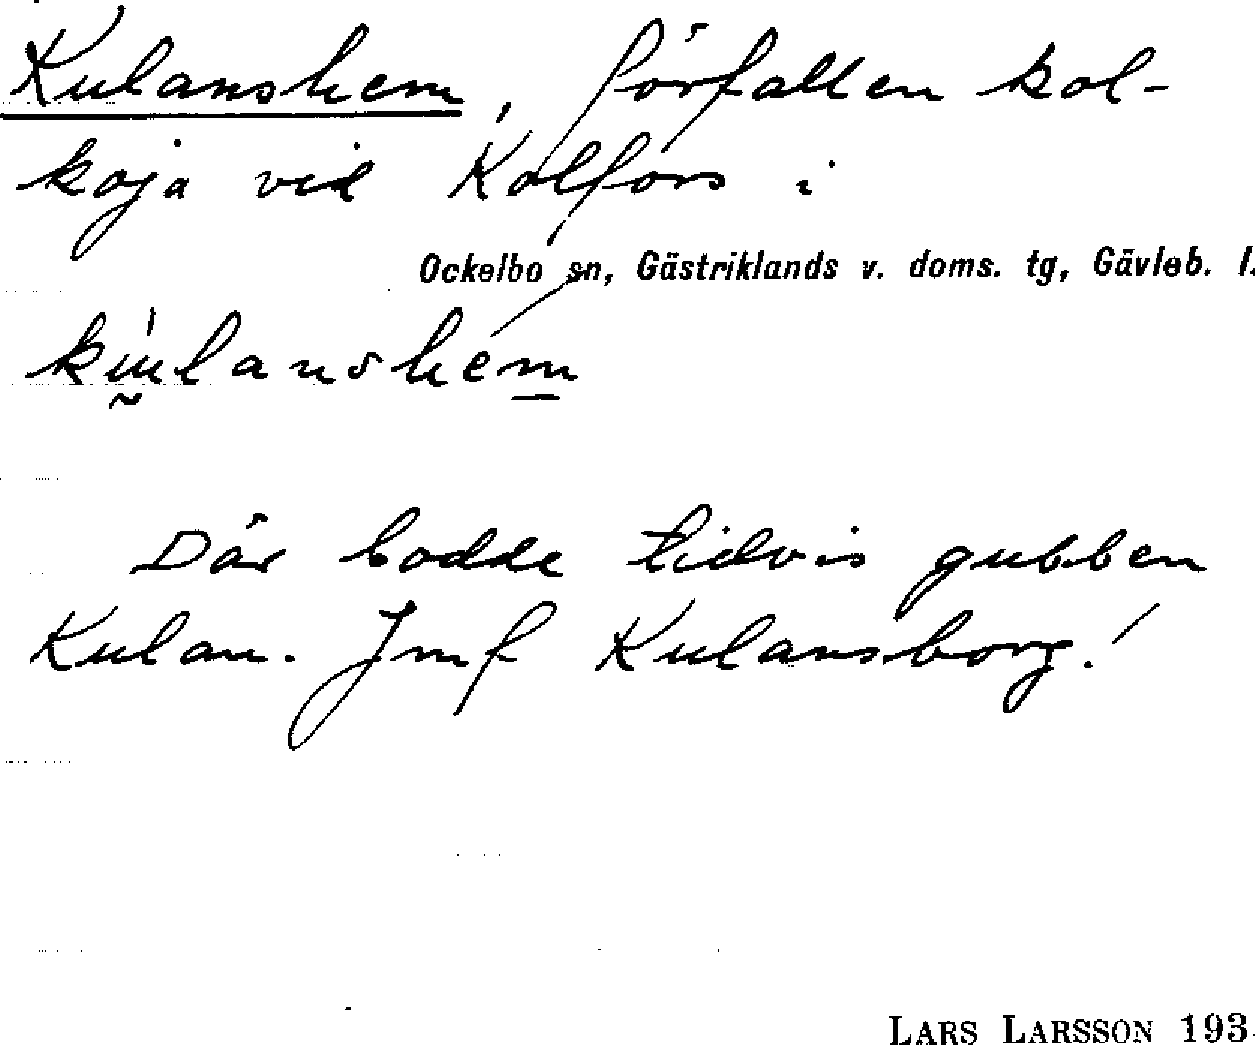 Kulanshem, förfallen kol-
koja vid Kolfors i
Ockelbo sn, Gästriklands v. doms. tg, Gävleb. l.
kulanshem
Där bodde tidvis gubben
Kulan. Jmf Kulansborg!
LARS LARSSON 193